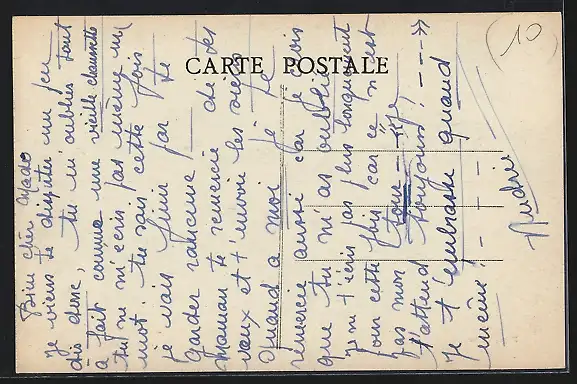 CARTE POSTALE
10
Bien cher
Je viens te disputer un peu
dis donc, tu m'oublies tout
a fait comme une vieille chaussette
tu ne m'ecris pas même un
mot. tu sais cette fois
je vais finir par te
garder rancune
Maman te remercie de tes
vœux et t'envoie les siens
Quand a moi je te
remercie aussi car je vois
que tu m'as oublié
je ne t'ecris pas plus longuement
pour cette fois car ce n'est
pas mon tour
J'attend toujours! ---
Je t'embrasse quand
même! - - - -
André